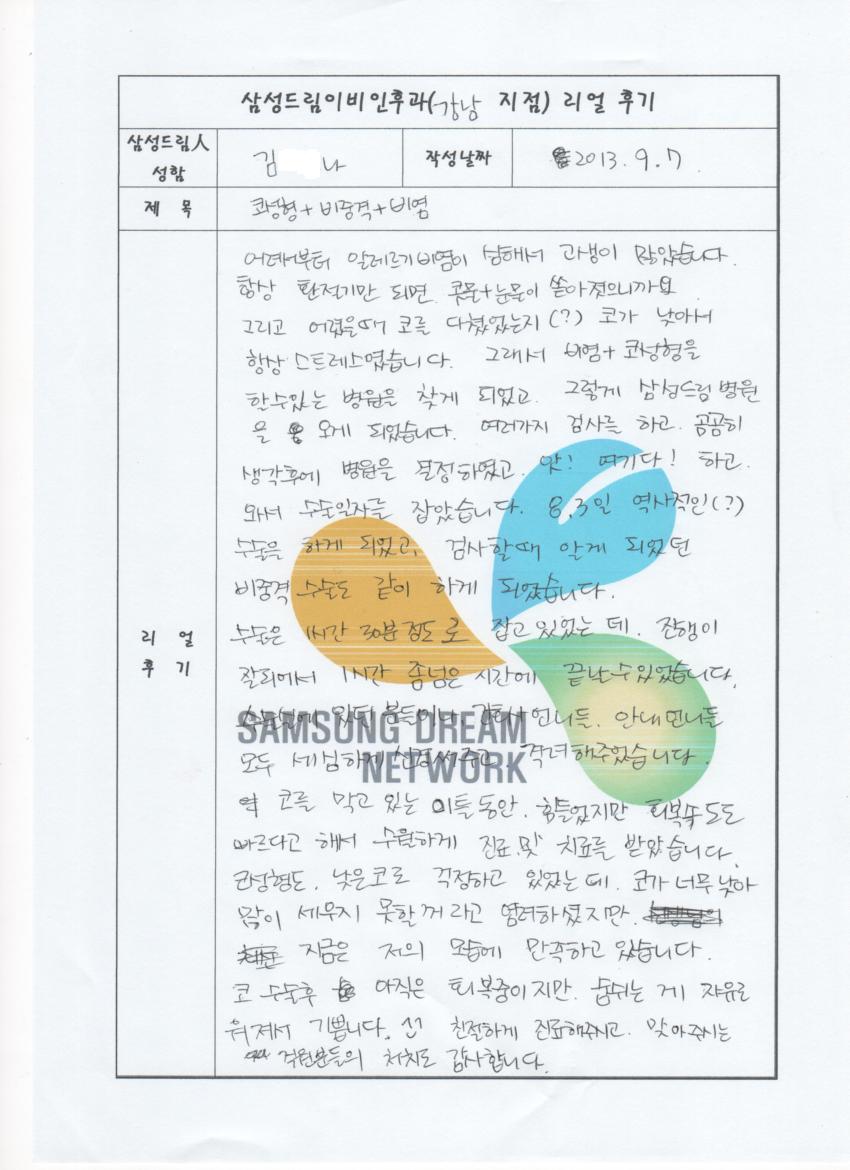 삼성드림이비인후과(강남 지점) 리얼 후기
삼성드림人 성함 김 나 작성날짜 2013. 9. 7
제 목 코성형+비중격+비염
리 얼 후 기
어려서부터 알레르기비염이 심해서 고생이 많았습니다.
항상 환절기만 되면 콧물+눈물이 쏟아졌으니까요
그리고 어렸을때 코를 다쳤었는지(?) 코가 낮아서
항상 스트레스였습니다. 그래서 비염+코성형을
할수있는 병원을 찾게 되었고. 그렇게 삼성드림병원
을 오게 되었습니다. 여러가지 검사를 하고. 곰곰히
생각후에 병원을 결정하였고. 앗! 여기다! 하고.
와서 수술일자를 잡았습니다. 8.3일 역사적인(?)
수술을 하게 되었고, 검사할때 알게 되었던
비중격 수술도 같이 하게 되었습니다.
수술은 1시간 30분 정도로 잡고 있었는 데. 진행이
잘되어서 1시간 좀넘은 시간에 끝난수있었습니다.
있던 분들이나 간호사언니들. 안내 언니들
모두 세심하게 신경써주고. 격려해주었습니다.
코를 막고 있는 이틀동안. 힘들었지만 회복속도도
빠르다고 해서 수월하게 진료 및 치료를 받았습니다.
코성형도. 낮은코로 걱정하고 있었는데. 코가 너무 낮아
많이 세우지 못할꺼라고 염려하셨지만.
지금은 저의 모습에 만족하고 있습니다.
코 수술후 아직은 회복중이지만. 숨쉬는 게 자유로
워져서 기쁩니다. 친절하게 진료해주시고. 맞아주시는
직원분들의 처치도 감사합니다.
SAMSUNG DREAM
NETWORK